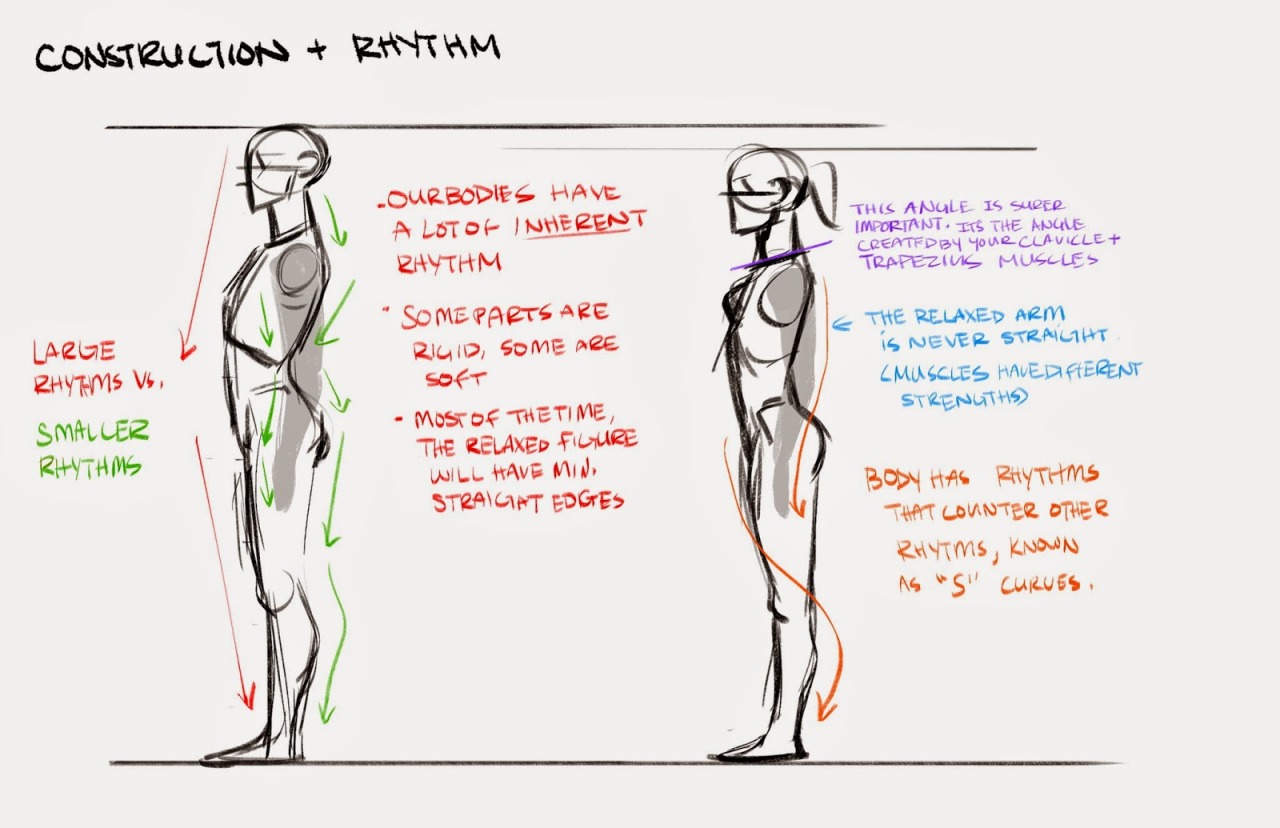 CONSTRUCTION + RHYTHM
. OUR BODIES HAVE
A LOT OF INHERENT
RHYTHM
" SOME PARTS ARE
RIGID, SOME ARE
SOFT
- MOST OF THE TIME,
THE RELAXED FIGURE
WILL HAVE MIN.
STRAIGHT EDGES
LARGE
RHYTHMS VS.
SMALLER
RHYTHMS
THIS ANGLE IS SUPER
IMPORTANT. ITS THE ANGLE
CREATED BY YOUR CLAVICLE +
TRAPEZIUS MUSCLES
THE RELAXED ARM
IS NEVER STRAIGHT.
(MUSCLES HAVE DIFFERENT
STRENGTHS)
BODY HAS RHYTHMS
THAT COUNTER OTHER
RHYTMS, KNOWN
AS "S" CURVES.